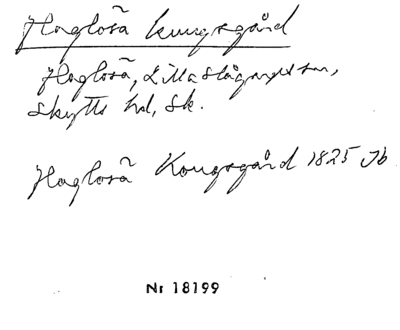 Haglösa kungsgård
Haglösa, Lilla Slågarps sn,
Skytts hd, Sk.
Haglösa Kongsgård 1825 Jb
Nr 18199